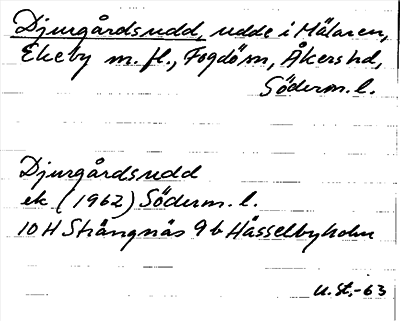 Djurgårdsudd, udde i Mälaren,
Ekeby m. fl., Fogdöm, Åkers hd,
Söderm. l.
Djurgårdsudd
ek (1962) Söderm. l.
10 H Strängnäs 9 b Hässelbyholm
U. St. -63